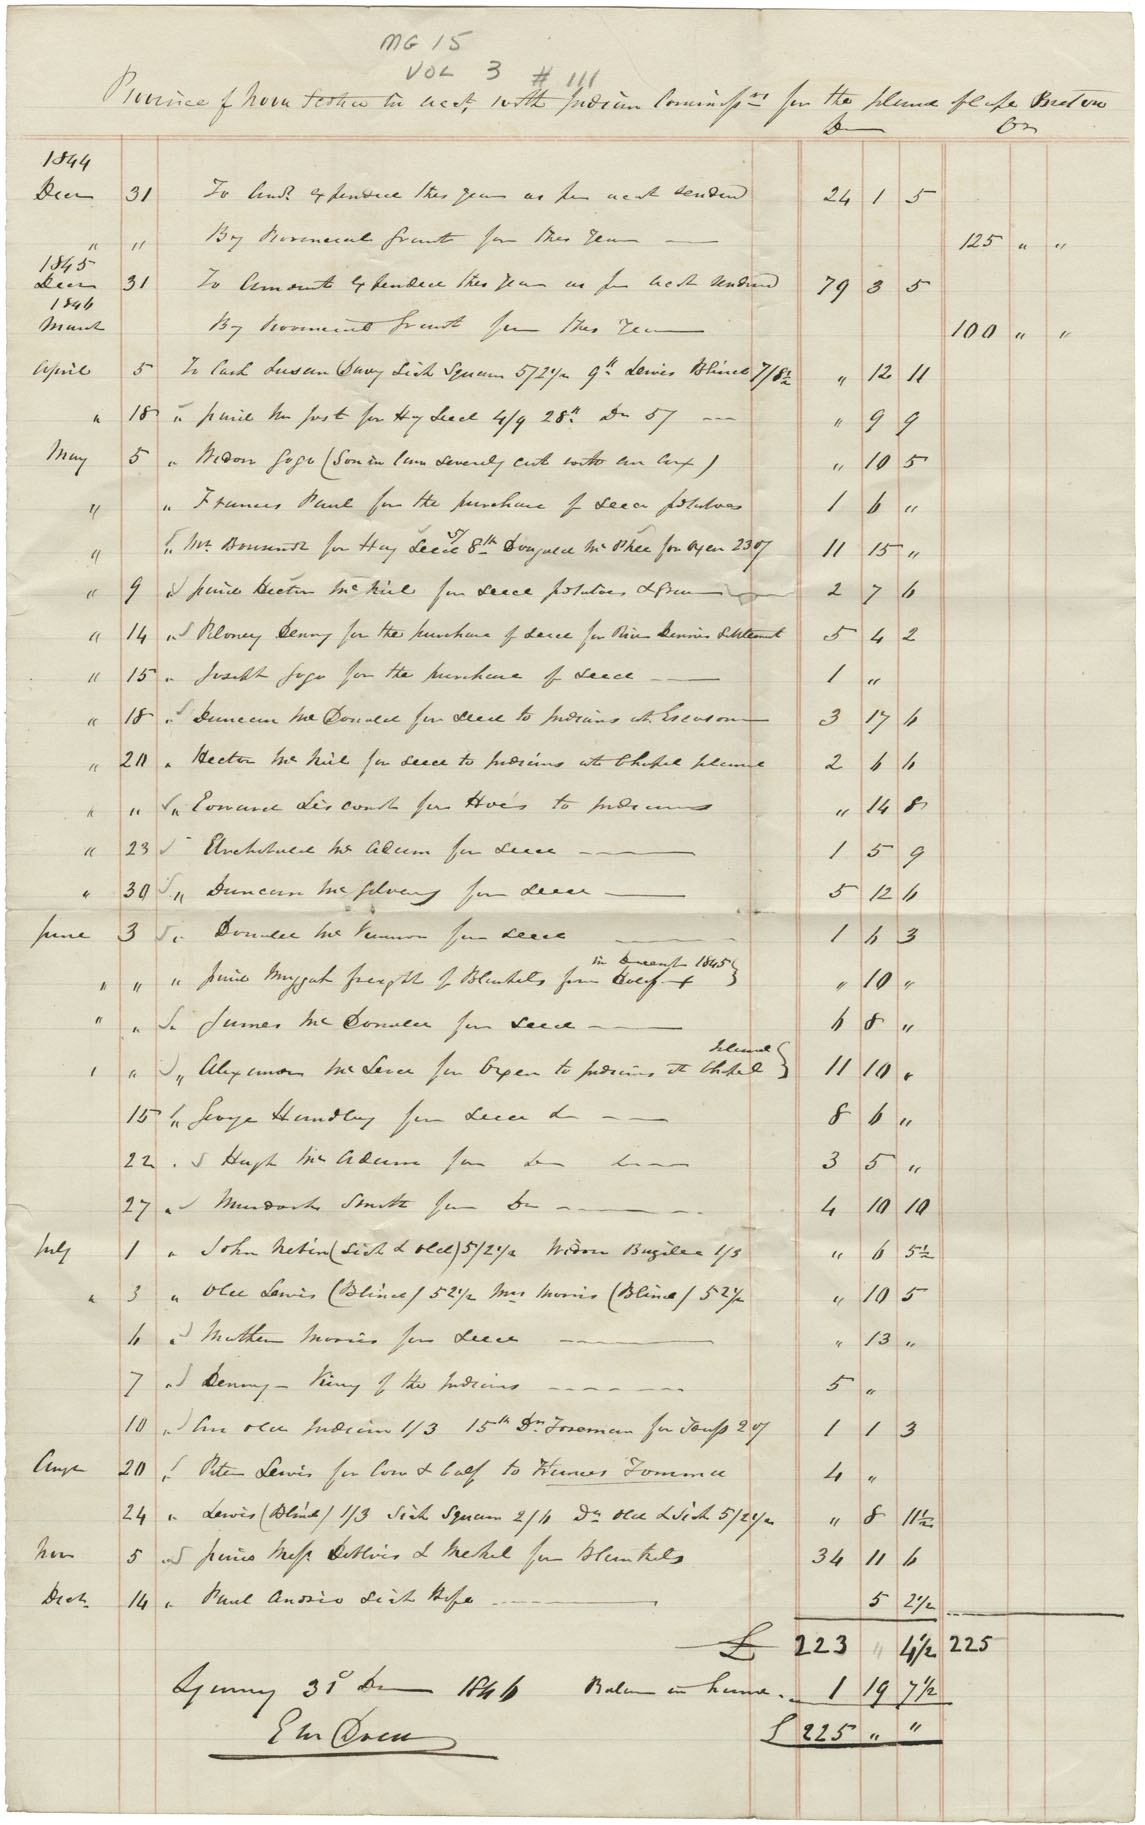 MG 15
VOL 3 # 111
Province of Nova Scotia in acct. with Indian Commissr for the Island of Cape Breton
Dr Cr
1844
Decr 31 To Amt. expended this year as per acct rendered 24 1 5
" " By Provincial Grant for this Year 125 " "
1845
Decr 31 To Amount expended this Year as per acct rendered 79 3 5
1846
March By Provincial Grant for this Year 100 " "
April 5 To Cash Susan Davy Sick Squaw 5/2½ 9th Lewis Blind 7/8½ " 12 11
" 18 " paid Mr Jost for Hay Seed 4/9 28th Do 5/ " 9 9
May 5 " Widow Gogo (Son in law severely cut with an axe) " 10 5
" " Frances Paul for the purchase of seed potatoes 1 6 "
" " Mr. for Hay Seed 5/ 8th Dougald McPhee for Oxen 230/ 11 15 "
" 9 " paid Hector McNiel for seed potatoes & 2 7 6
" 14 " Denny for the purchase of seed for River Dennis Settlement 5 4 2
" 15 " Joseph Gogo for the purchase of seed 1 "
" 18 " Duncan McDonald for seed to Indians at Escasoni 3 17 6
" 20 " Hector McNiel for seed to Indians at Chapel Island 2 6 6
" " " Edward Lisconet for Hoes to Indians " 14 8
" 23 Archibald McAdam for seed 1 5 9
" 30 " Duncan McGilvary for seed 5 12 6
June 3 " Donald McKinnon for seed 1 6 3
in Decemr 1845
" " " paid Muggah freight of Blankets from Halifax " 10 "
" " " James McDonald for seed 6 8 "
Island
" " " Alexander McLeod for Oxen to Indians at Chapel 11 10 "
15 " George Handley for seed Do 8 6 "
22 " Hugh McAdam for Do Do 3 5 "
27 " Murdock Smith for Do 4 10 10
July 1 " John Nevin (Sick & old) 5/2½ Widow Bazilee 1/3 " 6 5½
" 3 " Old Lewis (Blind) 5 2½ Mrs Morris (Blind) 5 2½ " 10 5
6 " Mathew Morris for seed " 13 "
7 " Denny – King of the Indians 5 "
10 " An old Indian 1/3 15th Dn. Foreman for 20/ 1 1 3
Augt 20 " Peter Lewis for Cow & Calf to Frances Tomma 4 "
24 " Lewis (Blind) 1/3 Sick Squaw 2/6 Do old & Sick 5/2½ " 8 11½
Nov 5 " paid Messr DeBlois & Merkel for Blankets 34 11 6
Decr. 14 " Paul Andrio Sick 5 2½
£ 223 " 4½ 225
Sydney 31 Dec 1846 Balance in hand 1 19 7½
E M Dodd £ 225 " "